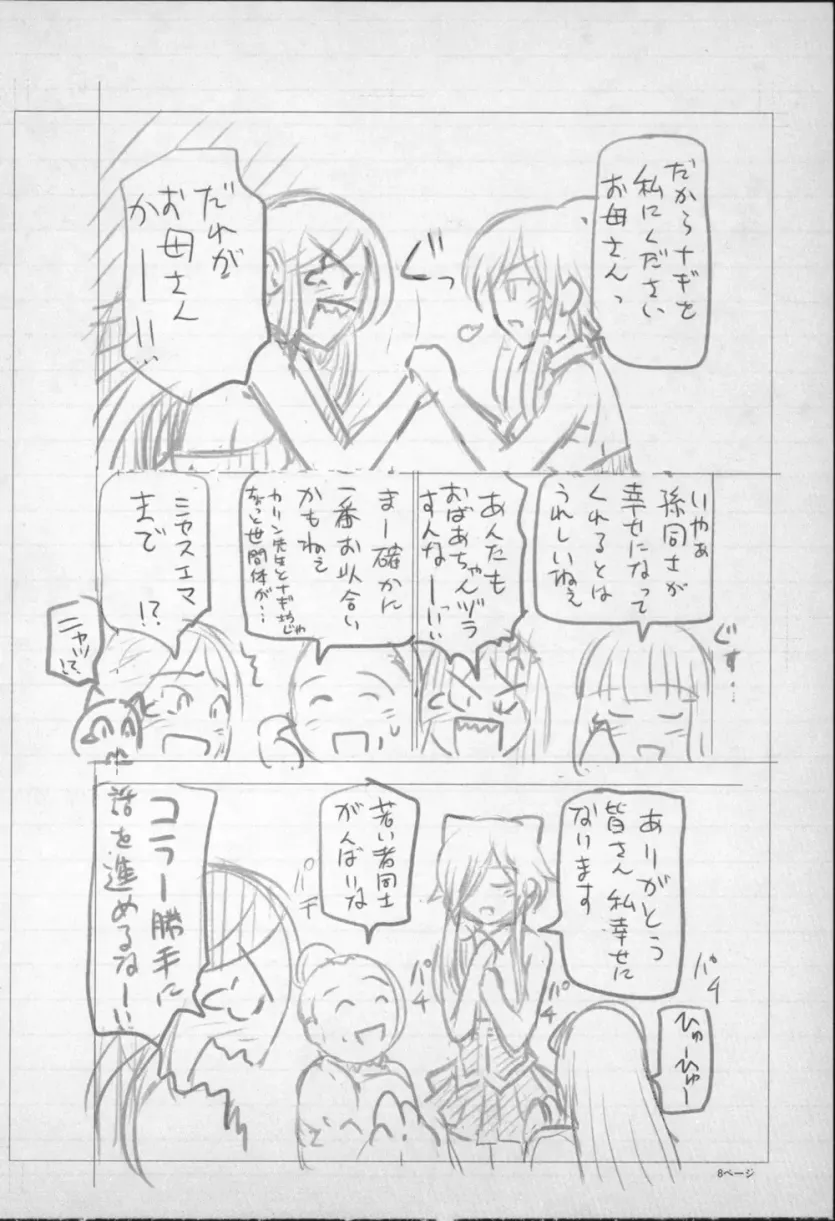 だからナギを
私にください
お母さんっ
ぐっ
だれが
お母さん
かーー!!
いやぁ
孫同士が
幸せになって
くれるとは
うれしいねぇ
ぐす…
あんたも
おばあちゃんヅラ
すんなーっ!!
まー確かに
一番お似合い
かもねぇ
カリン先生とナギ坊じゃ
ちょっと世間体が…
ミヤスエマ
まで
!?
ニャッ!?
ありがとう
皆さん 私幸せに
なります
ひゅーひゅー
パチ
パチ
パチ
若い者同士
がんばいな
パチ
コラー勝手に
話を進めるなーい
8ページ